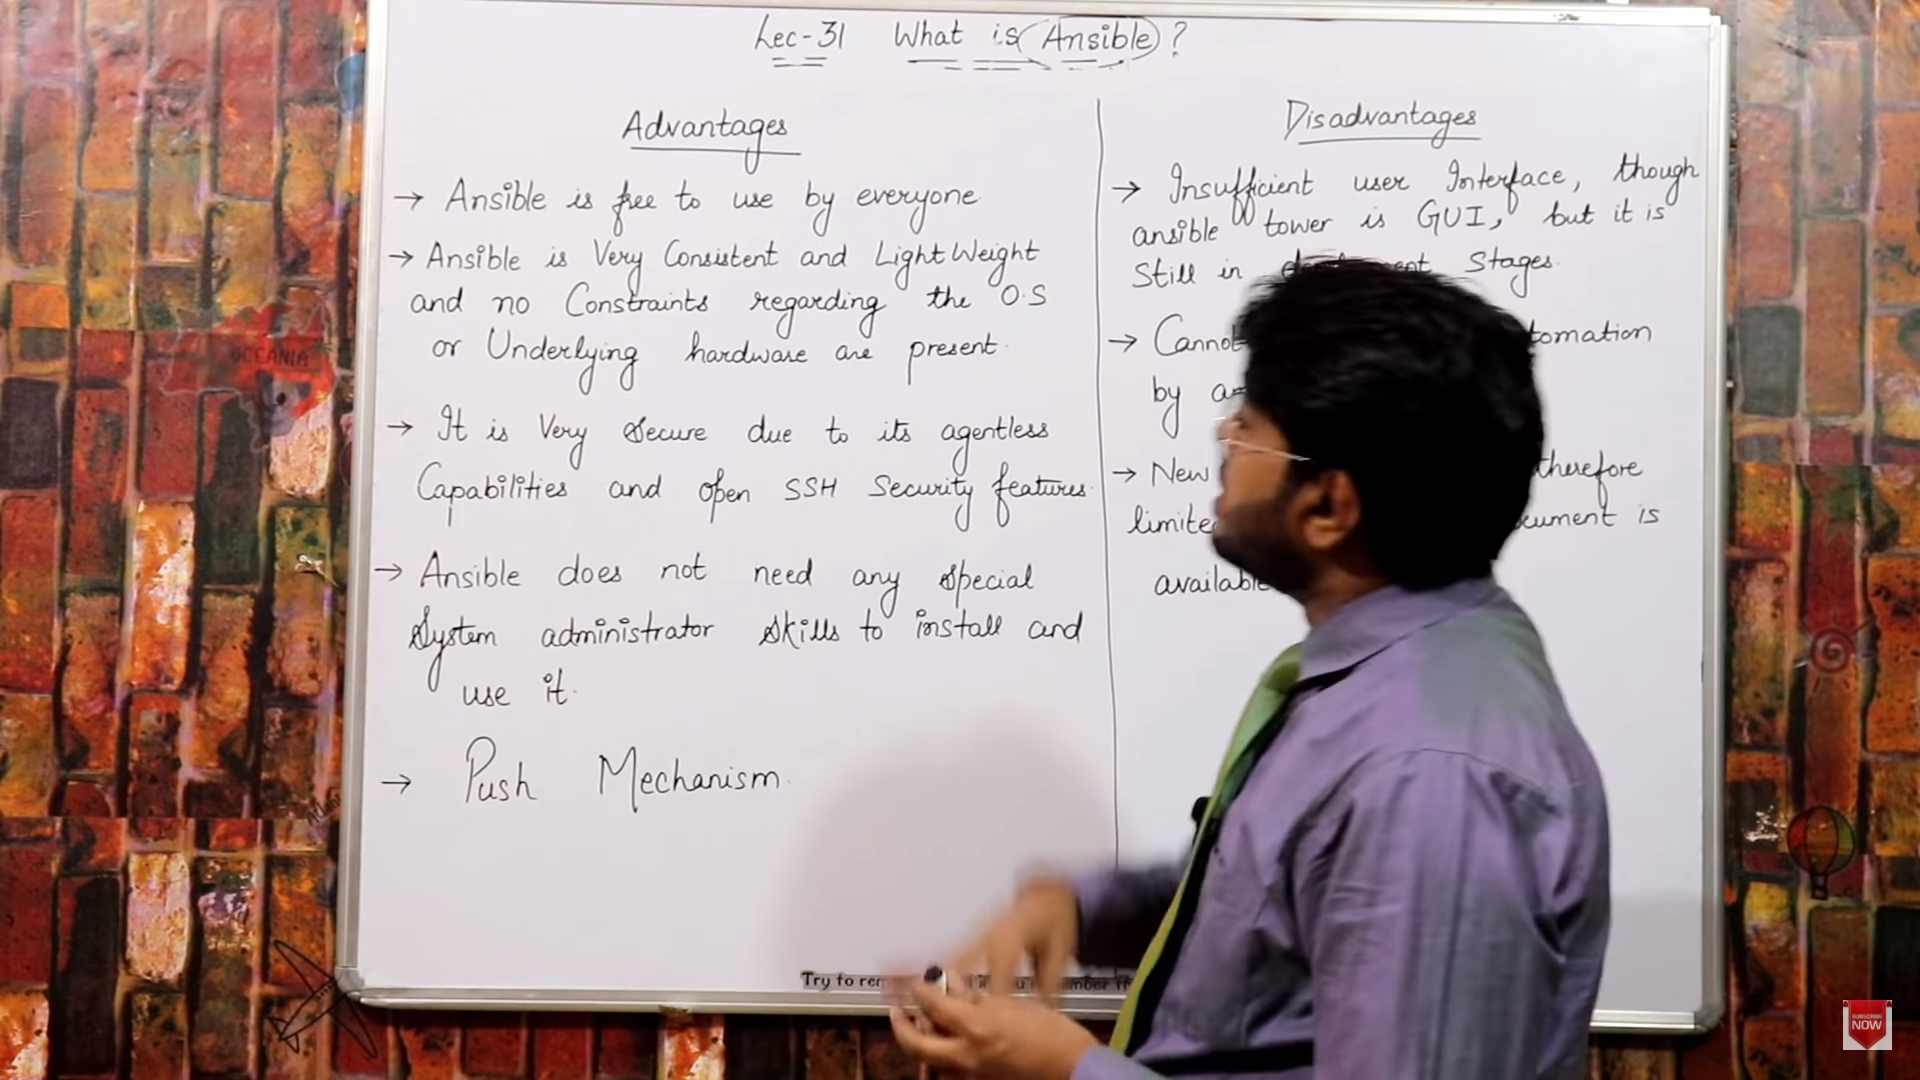 Lec-31 What is Ansible ?
Advantages
→ Ansible is free to use by everyone.
→ Ansible is Very Consistent and LightWeight
and no Constraints regarding the O.S
or Underlying hardware are present.
→ It is Very Secure due to its agentless
Capabilities and open SSH Security features.
→ Ansible does not need any Special
System administrator Skills to install and
use it.
→ Push Mechanism.
Disadvantages
→ Insufficient user Interface, though
ansible tower is GUI, but it is
Still in Stages.
→ Cannot
by
→ New therefore
is
available
Try to
OCEANIA
SUBSCRIBE
NOW